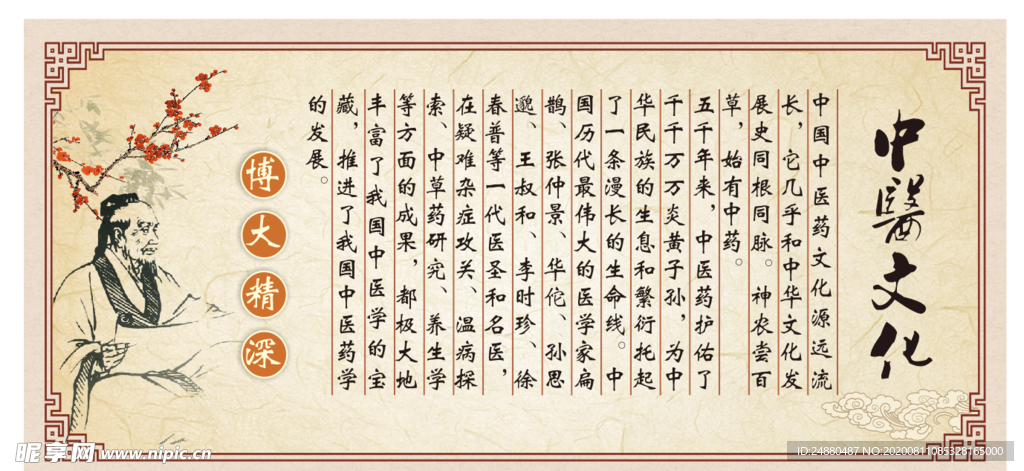 中醫文化
中国中医药文化源远流
长，它几乎和中华文化发
展史同根同脉。神农尝百
草，始有中药。
五千年来，中医药护佑了
千千万万炎黄子孙，为中
华民族的生息和繁衍托起
了一条漫长的生命线。中
国历代最伟大的医学家扁
鹊、张仲景、华佗、孙思
邈、王叔和、李时珍、徐
春普等一代医圣和名医，
在疑难杂症攻关、温病探
索、中草药研究、养生学
等方面的成果，都极大地
丰富了我国中医学的宝
藏，推进了我国中医药学
的发展。
博大精深
昵享网 www.nipic.cn
ID:24880487 NO:20200811085328765000